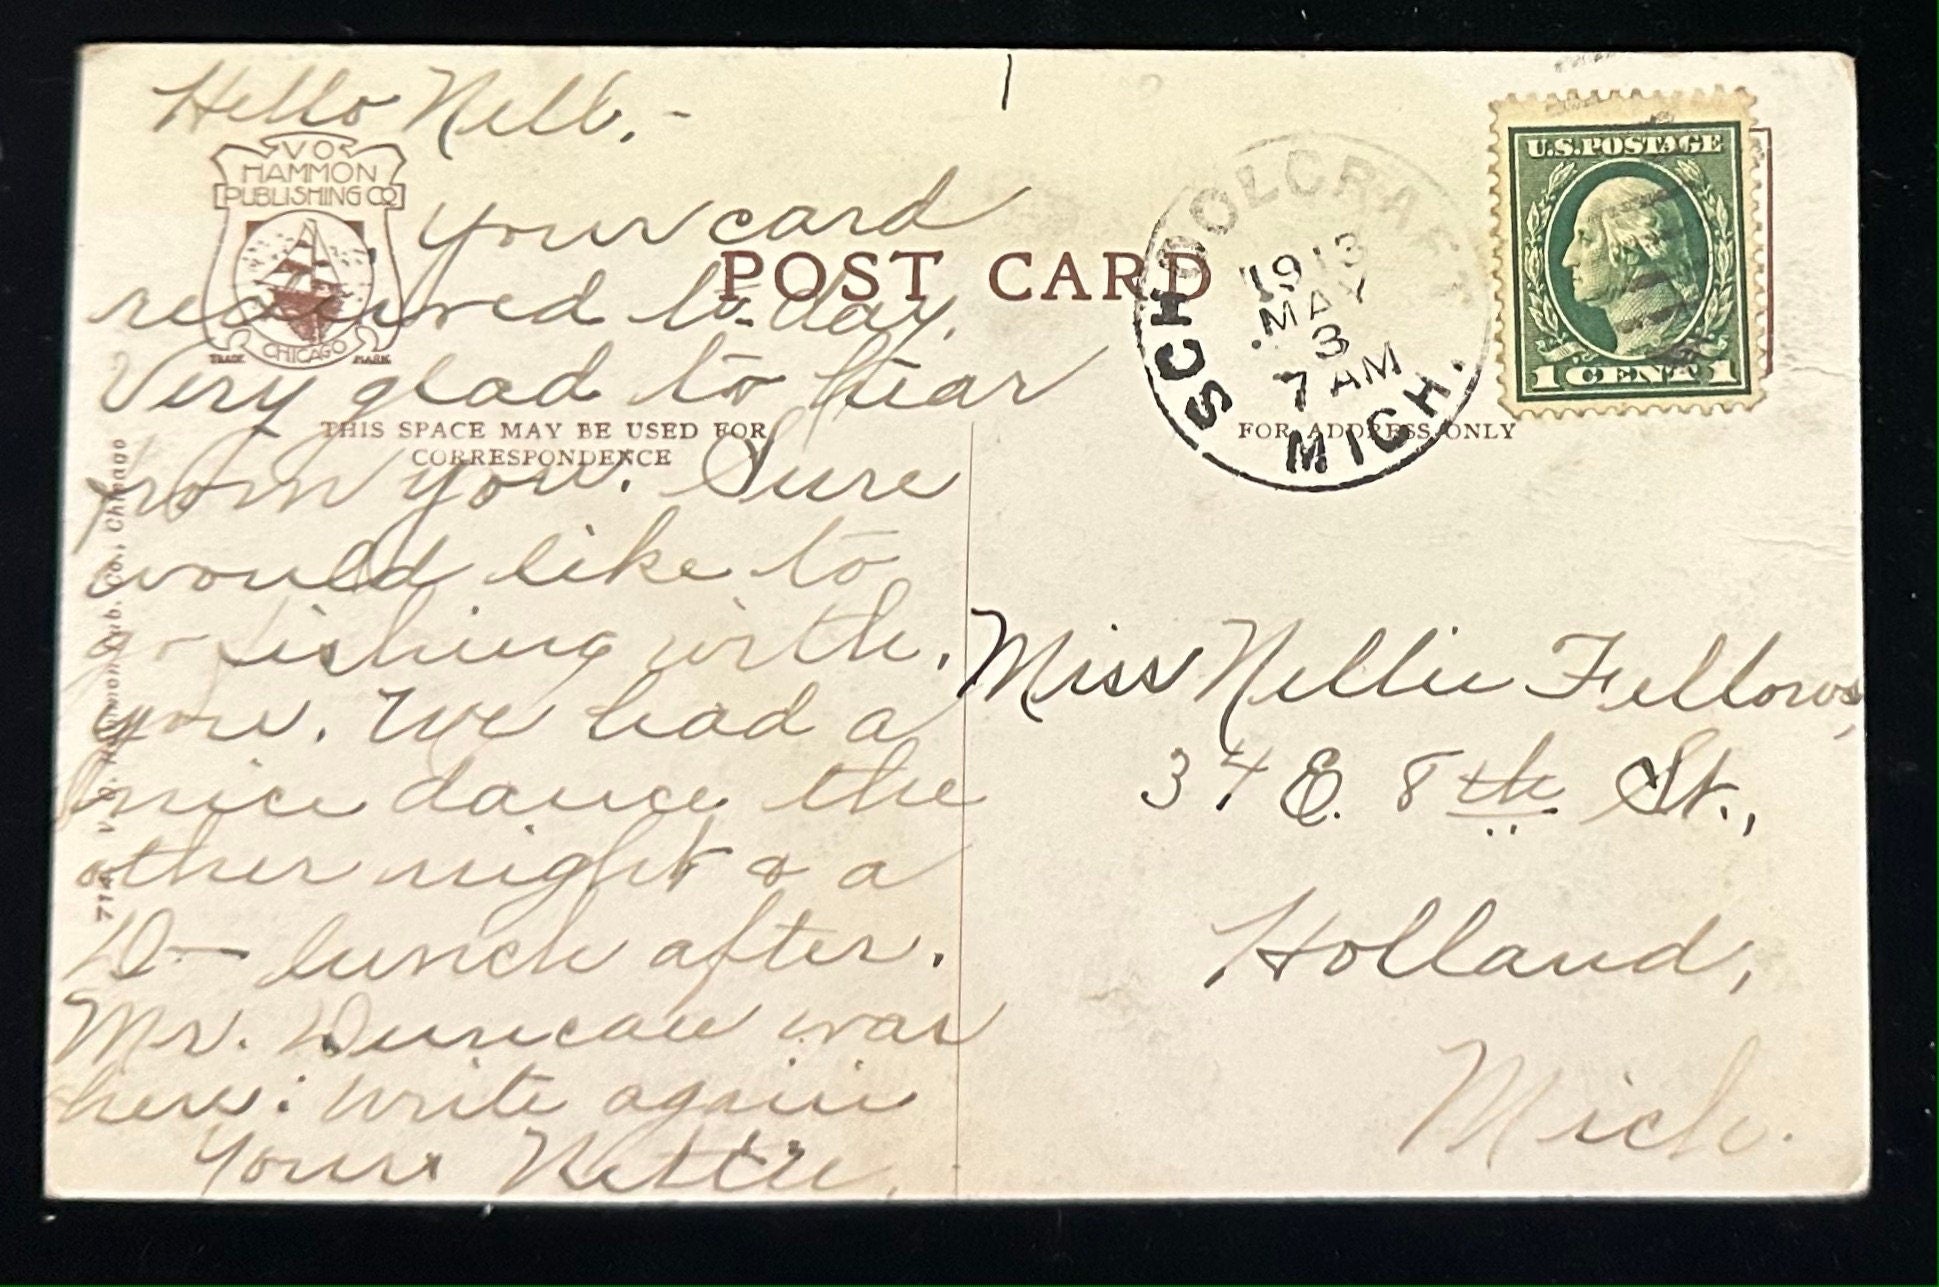 Hello Nell, -
VO
HAMMON
PUBLISHING CO
TRADE CHICAGO MARK
Your card
received to-day.
Very glad to hear
from you. Sure
would like to
go fishing with
you. We had a
nice dance the
other night & a
D— lunch after.
Mr. Duncan was
here. Write again
Yours Nettie.
POST CARD
THIS SPACE MAY BE USED FOR
CORRESPONDENCE
FOR ADDRESS ONLY
V. O. Hammon Pub. Co., Chicago
SCHOOLCRAFT
1913
MAY
3
7 AM
MICH.
U.S. POSTAGE
1 CENT 1
Miss Nellie Fellows,
34 E. 8th St.,
Holland,
Mich.